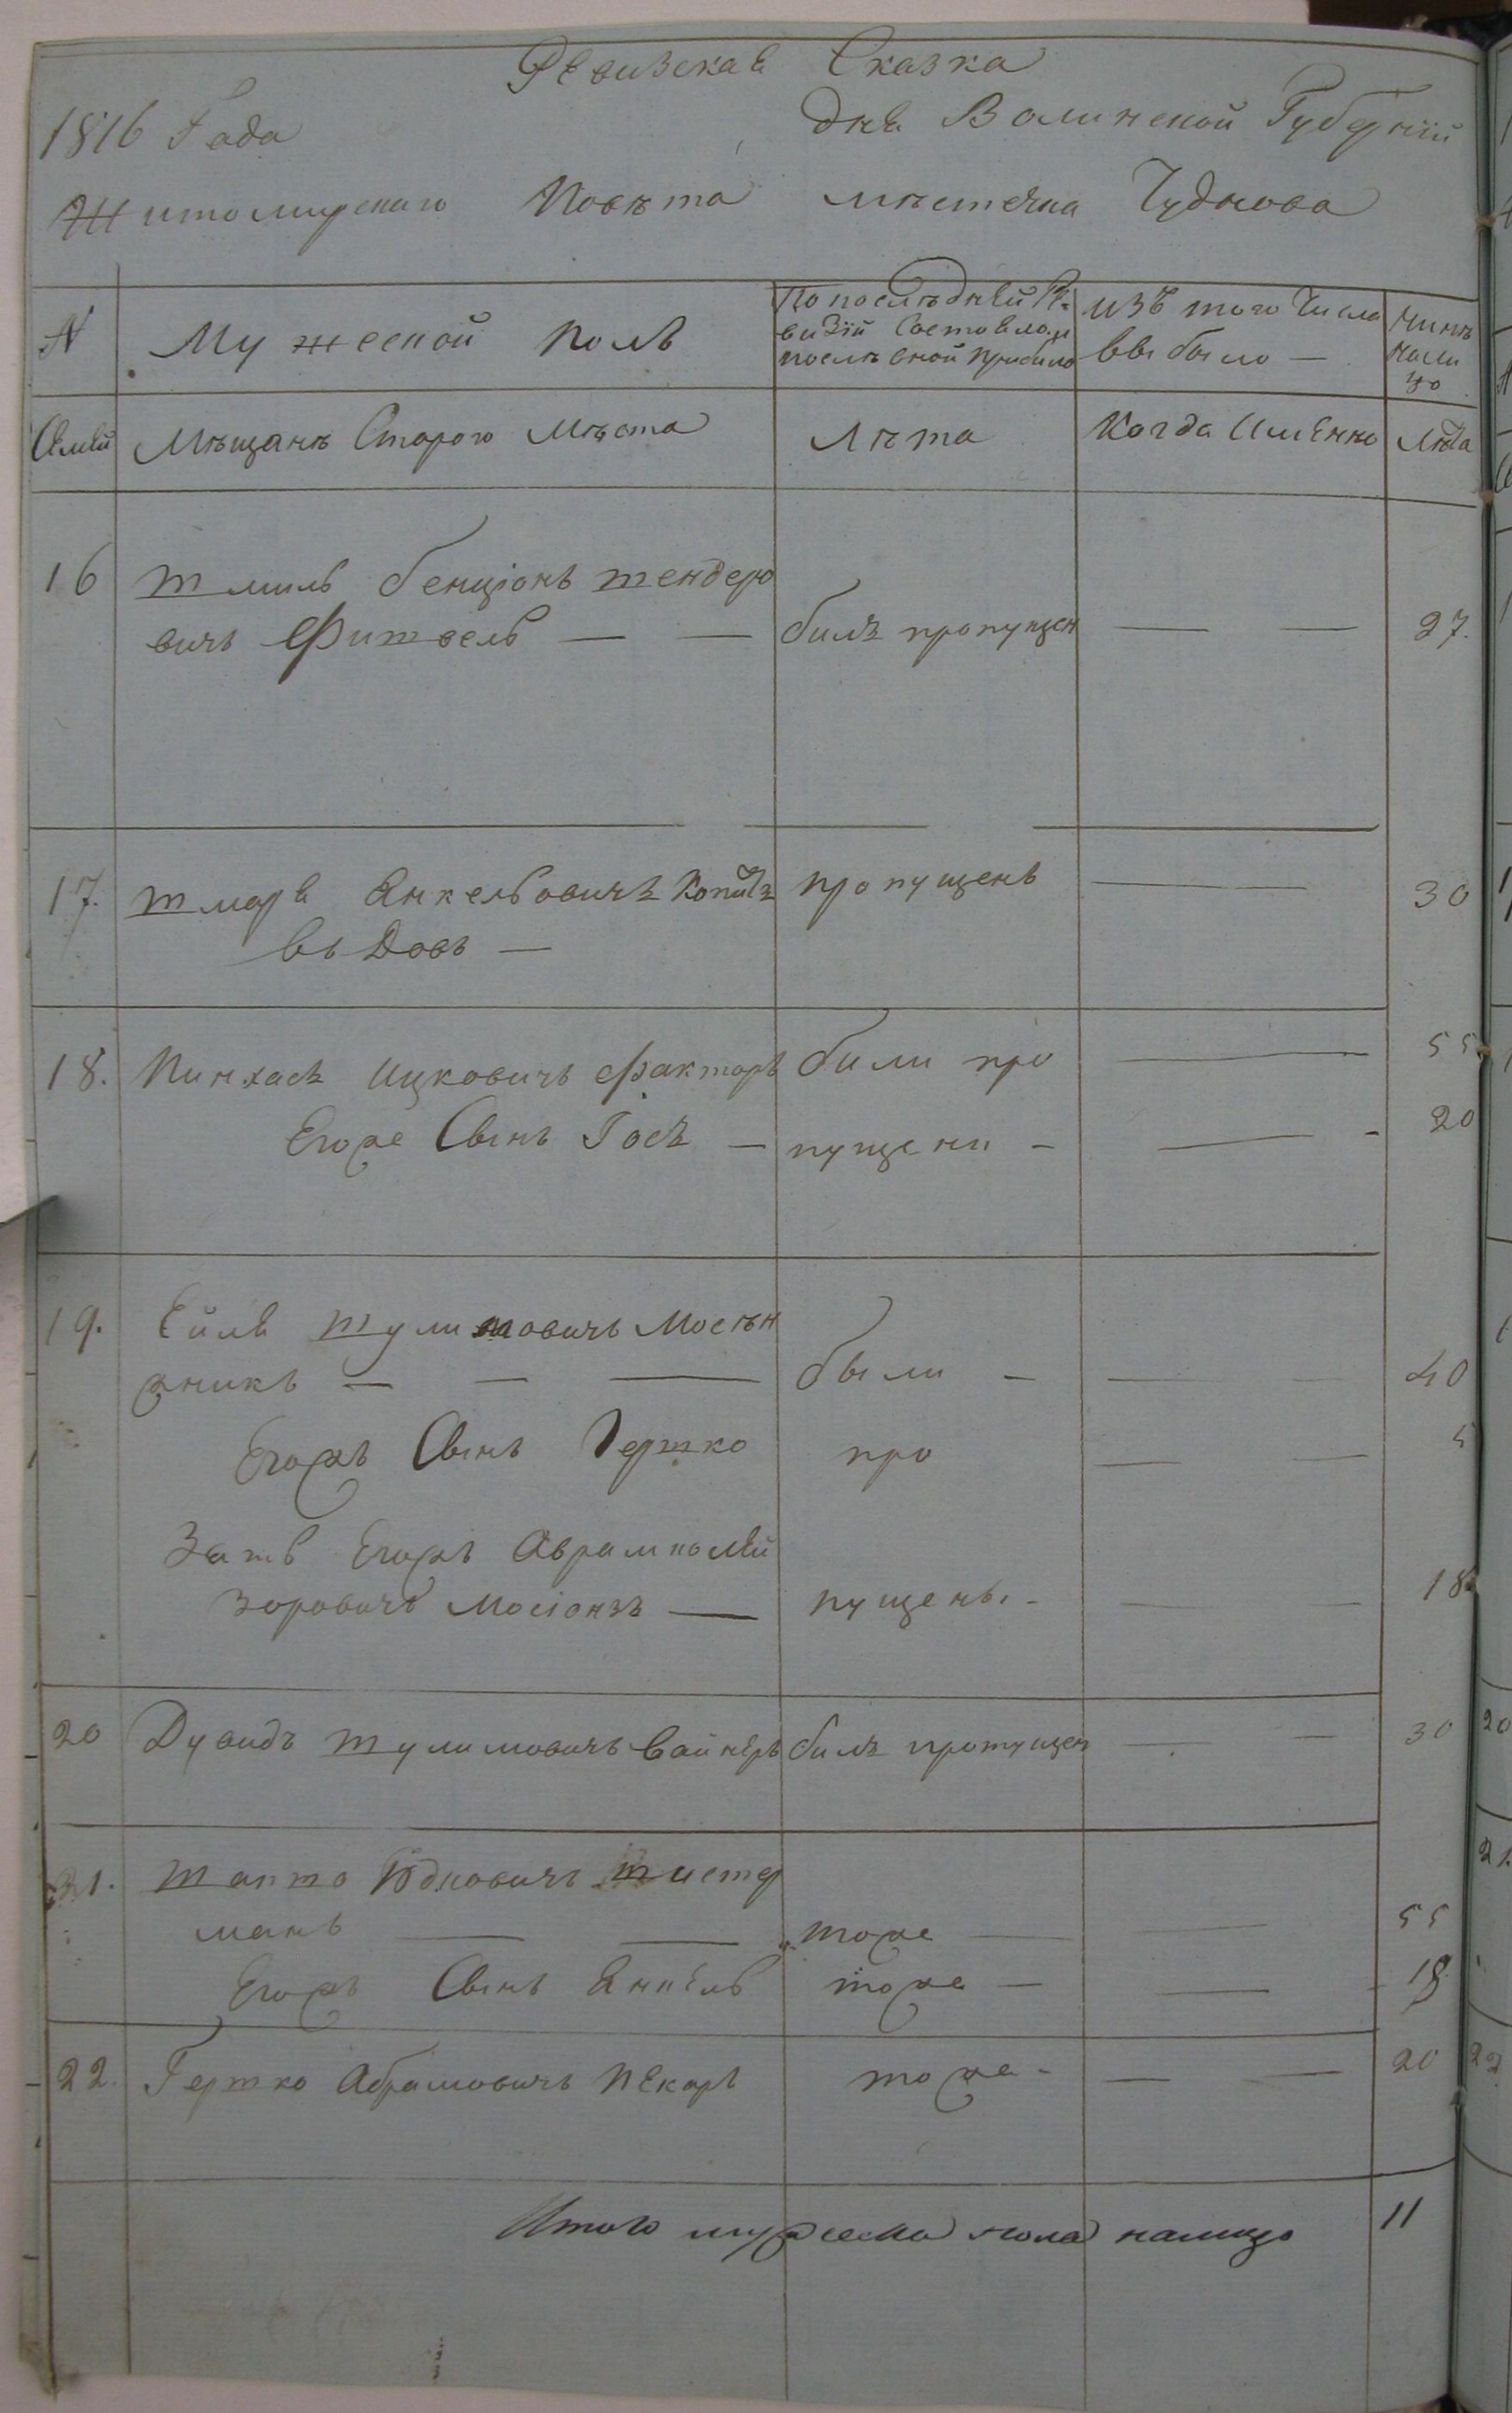 Ревизская Сказка
1816 Года дня Волинской Губернїи
Житомирскаго Повѣта мѣстечка Чуднова
№ Мужеской полъ
По послѣдней Ре
визїи состояло и
послѣ оной прибило
изъ того числа
выбыло —
нынѣ
нали
цо
Семей Мѣщанъ Старого Мѣста Лѣта Когда Именно Лѣта
16 Шмиль Бенціонъ Шендеро
вичъ Фитзель — — билъ пропущен — — 27.
17. Шмаря Янкельовичъ пропущенъ — — 30
вдовъ —
18. Пинхасъ Ицковичъ Факторъ били про — 55
Егоже Сынъ Іосъ — пущени — — 20
19. Шулимовичъ Мосѣн
жникъ — — — были — — — 40
Егожъ Сынъ Гершко про — — 5
Зять Егожъ Аврамъ
зоровичъ — пущены — — — 18
20 Дувидъ Шулимовичъ Вайнеръ билъ пропущен — — 30
21. Шапшо Юдковичъ Шистер
манъ — — тоже — — 55
Егожъ Сынъ Янкель тоже — — 18
22. Гершко Абрамовичъ Пекаръ тоже — — — 20
Итого мужеска пола налицо 11